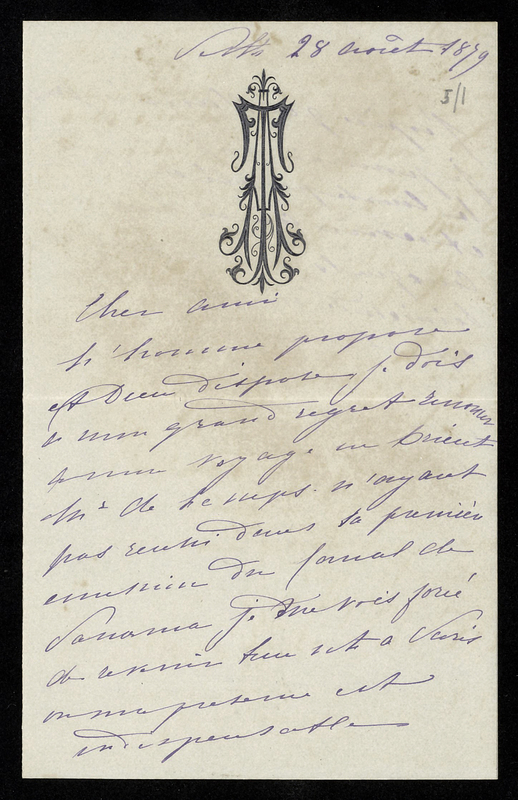 Pesth 28 août 1879
5/1
Cher ami
L'homme propose
et Dieu dispose, je dois
a mon grand regret renoncer
a mon voyage en Orient
Mr de Lesseps n'ayant
pas reussi dans sa premiere
emission du Canal de
Panama je me vois forcé
de revenir tout de suite a Paris
ou ma presence est
indispensable